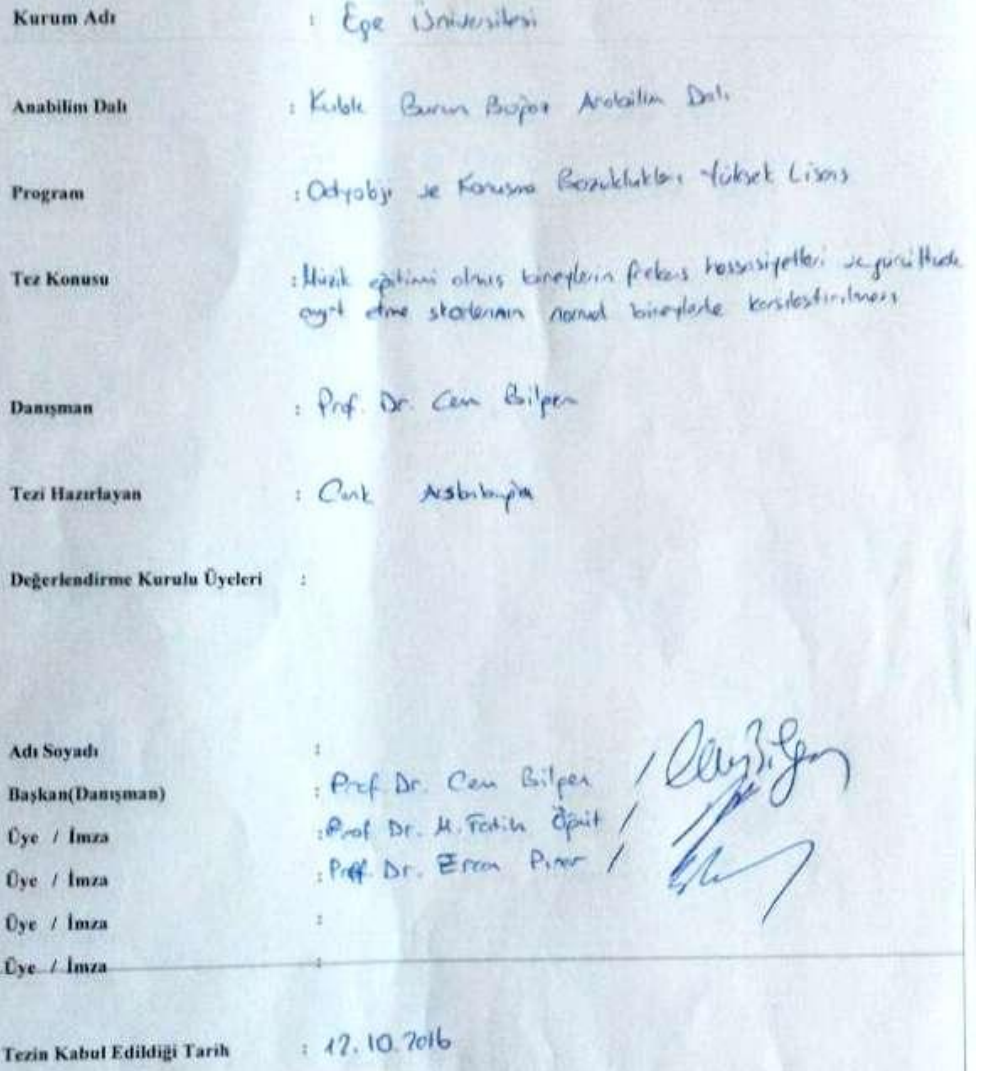 Kurum Adı : Ege Üniversitesi
Anabilim Dalı : Kulak Burun Boğaz Anabilim Dalı
Program : Odyoloji ve Konuşma Bozuklukları Yüksek Lisans
Tez Konusu : Müzik eğitimi olmuş bireylerin frekans hassasiyetleri ve gürültüde
ayırt etme skorlarının normal bireylerle karşılaştırılması
Danışman : Prof. Dr. Cem Bilgen
Tezi Hazırlayan : Cenk
Değerlendirme Kurulu Üyeleri :
Adı Soyadı :
Başkan(Danışman) : Prof. Dr. Cem Bilgen /
Üye / İmza : Prof Dr. M. Fatih Öğüt /
Üye / İmza : Prof. Dr. Ercan Pınar /
Üye / İmza :
Üye / İmza :
Tezin Kabul Edildiği Tarih : 12.10.2016